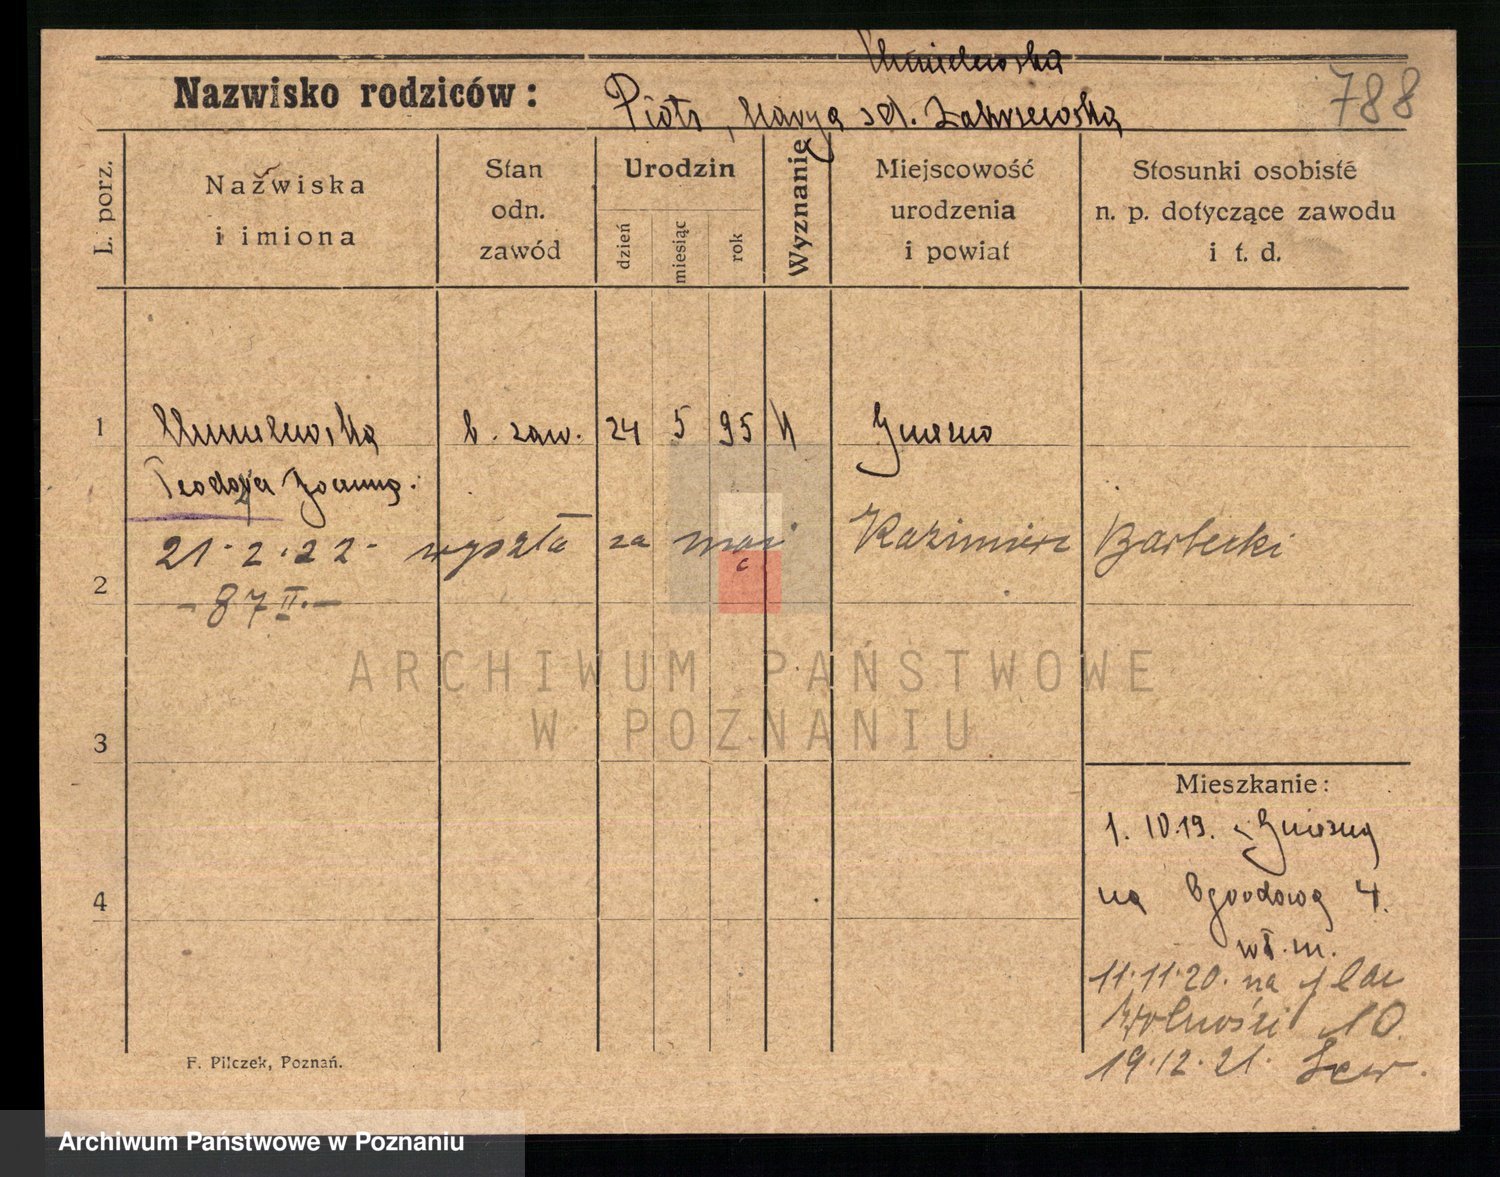 Chmielewska
788
Nazwisko rodziców: Piotr, Marya zd. Zakrzewska
L. porz.
Nazwiska i imiona
Stan odn. zawód
Urodzin
dzień miesiąc rok
Wyznanie
Miejscowość urodzenia i powiat
Stosunki osobiste n. p. dotyczące zawodu i t. d.
1 Chmielewska b. zaw. 24 5 95 k Gniezno
Teodozja Joanna.
21.2.22- wyszła za mąż Kazimierz Bartecki
2
-87 II.-
ARCHIWUM PAŃSTWOWE
W POZNANIU
3
Mieszkanie:
1. 10.19. z Gniezna
4
na Ogrodową 4.
wł. m.
11.11.20. na plac
Wolności 10.
19.12.21.
F. Pilczek, Poznań.
Archiwum Państwowe w Poznaniu